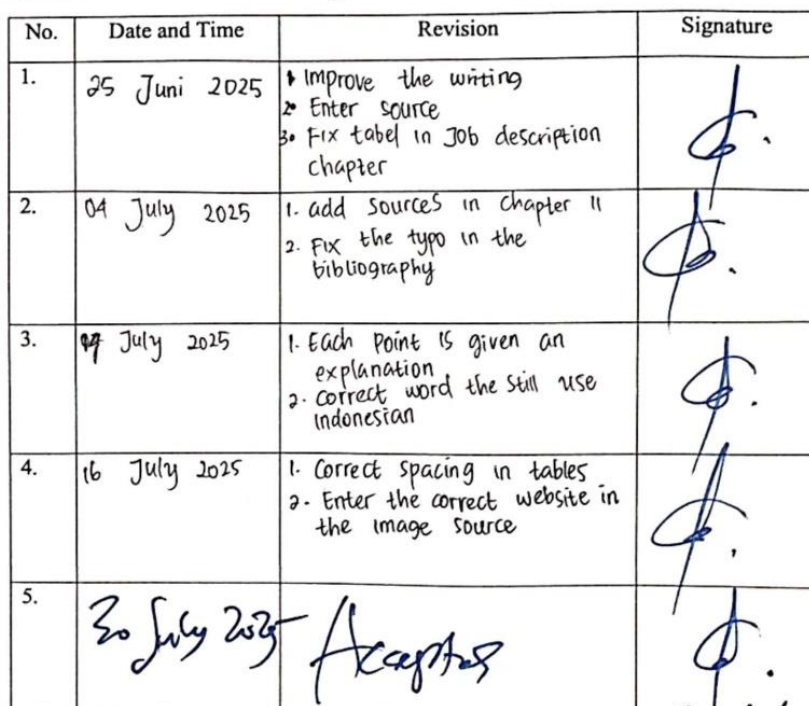 No. Date and Time Revision Signature
1. 25 Juni 2025 1. Improve the writing
2. Enter source
3. Fix tabel in Job description
chapter
2. 04 July 2025 1. add sources in chapter II
2. Fix the typo in the
bibliography
3. July 2025 1. Each point is given an
explanation
2. correct word the still use
Indonesian
4. 16 July 2025 1. Correct spacing in tables
2. Enter the correct website in
the image source
5. 30 July 2025 Accepted